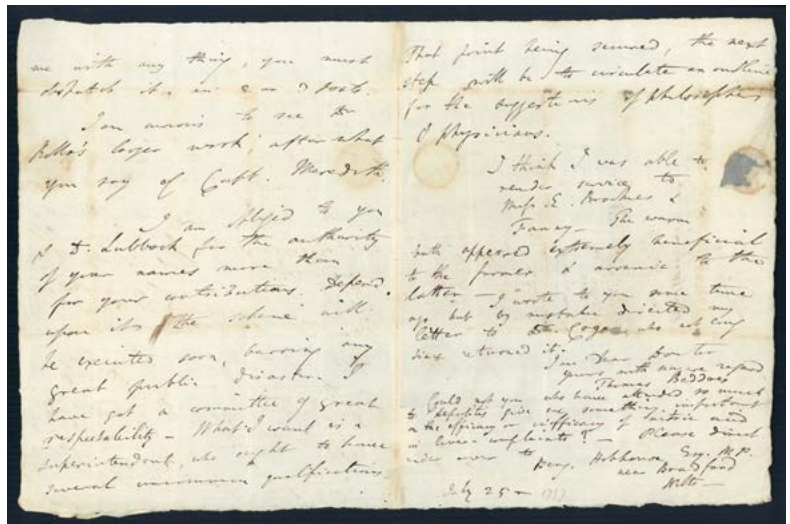 me with any thing, you must
dispatch it in 2 or 3 Posts.
I am anxious to see Dr
Rollo's larger work, after what
you say of Capt. Meredith.
I am obliged to you
& Dr. Lubbock for the authority
of your names more than
for your contributions. Depend
upon it the scheme will
be executed soon, barring any
great public disaster. I
have got a committee of great
respectability – What I want is a
superintendent, who ought to have
several uncommon qualifications
That point being secured, the next
step will be to circulate an outline
for the suggestions of philosophers
& physicians.
I think I was able to
render service to
Miss E. &
Fanny – The warm
bath appeared extremely beneficial
to the former & arsenic to the
latter – I wrote to you some time
ago but by mistake directed my
letter to Dr. who not long
since returned it.
I'm Dear Doctor
yours with sincere regard
Thomas Beddoes
Could not you who have attended so much
to give me something important
on the efficacy or inefficacy of nitric acid
in liver complaints? – Please direct
under cover to Benj. Hobhouse Esq. M.P.
near Bradford
Wilts –
July 25 – 1797